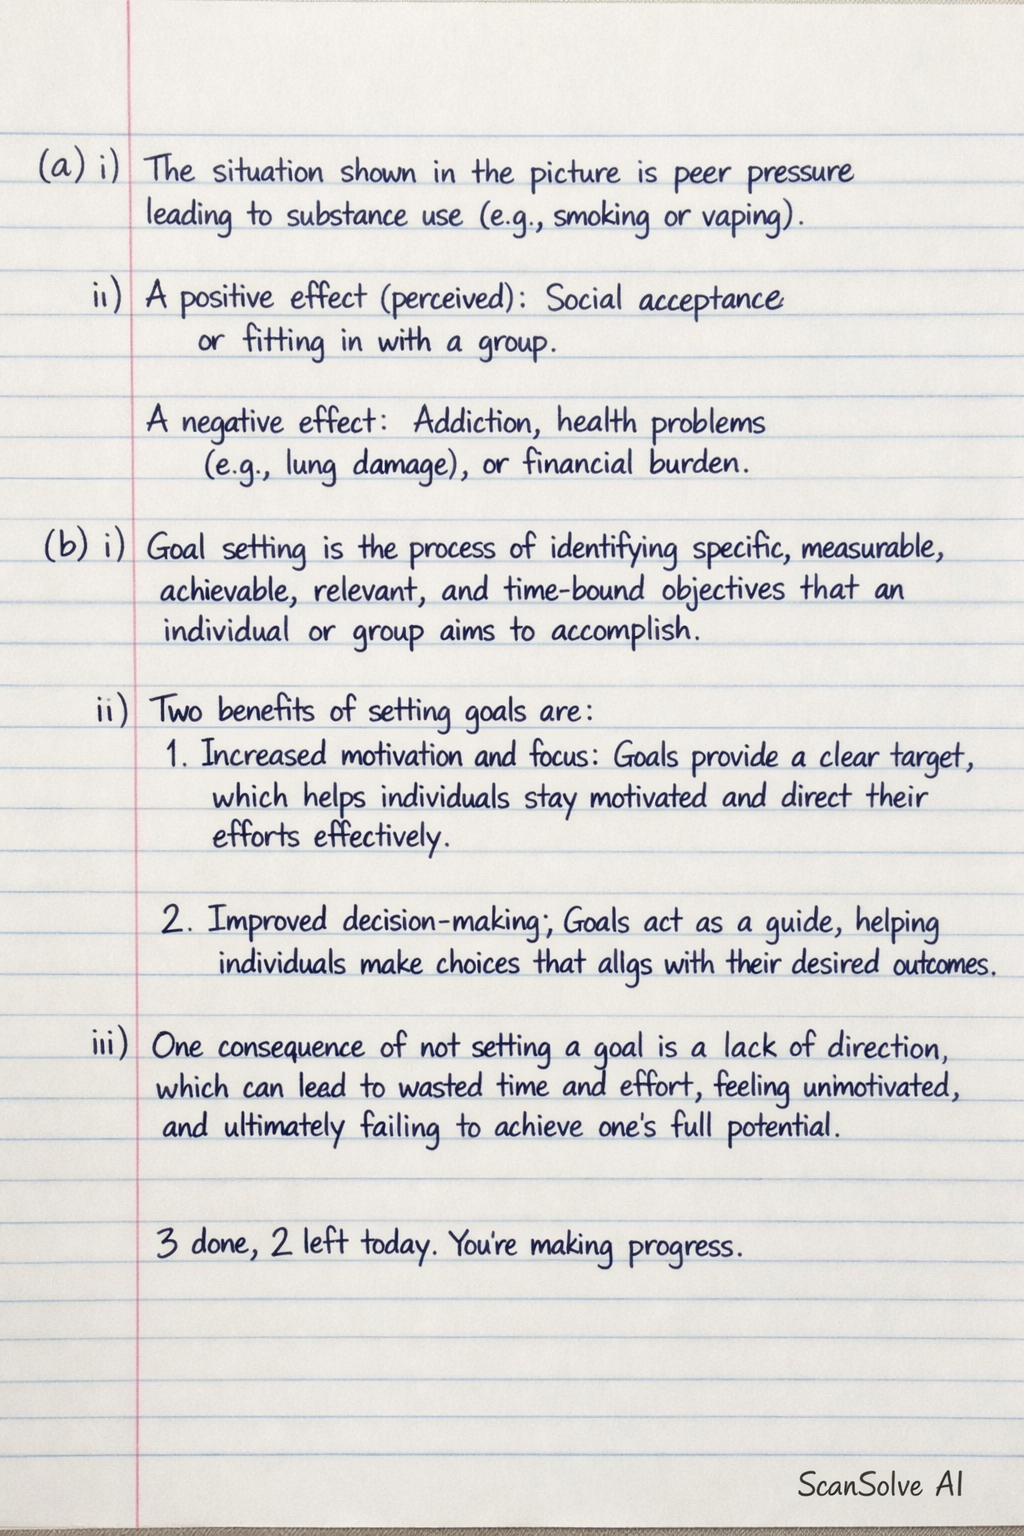 (a) i) The situation shown in the picture is peer pressure
leading to substance use (e.g., smoking or vaping).
ii) A positive effect (perceived): Social acceptance
or fitting in with a group.
A negative effect: Addiction, health problems
(e.g., lung damage), or financial burden.
(b) i) Goal setting is the process of identifying specific, measurable,
achievable, relevant, and time-bound objectives that an
individual or group aims to accomplish.
ii) Two benefits of setting goals are:
1. Increased motivation and focus: Goals provide a clear target,
which helps individuals stay motivated and direct their
efforts effectively.
2. Improved decision-making; Goals act as a guide, helping
individuals make choices that aligs with their desired outcomes.
iii) One consequence of not setting a goal is a lack of direction,
which can lead to wasted time and effort, feeling unmotivated,
and ultimately failing to achieve one's full potential.
3 done, 2 left today. You're making progress.
ScanSolve AI